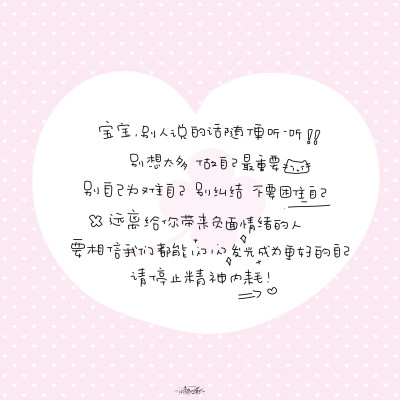 宝宝,别人说的话随便听一听!!
别想太多 做自己最重要
别自己为难自己 别纠结 不要困住自己
远离给你带来负面情绪的人
要相信我们都能闪闪发光成为更好的自己
请停止精神内耗!